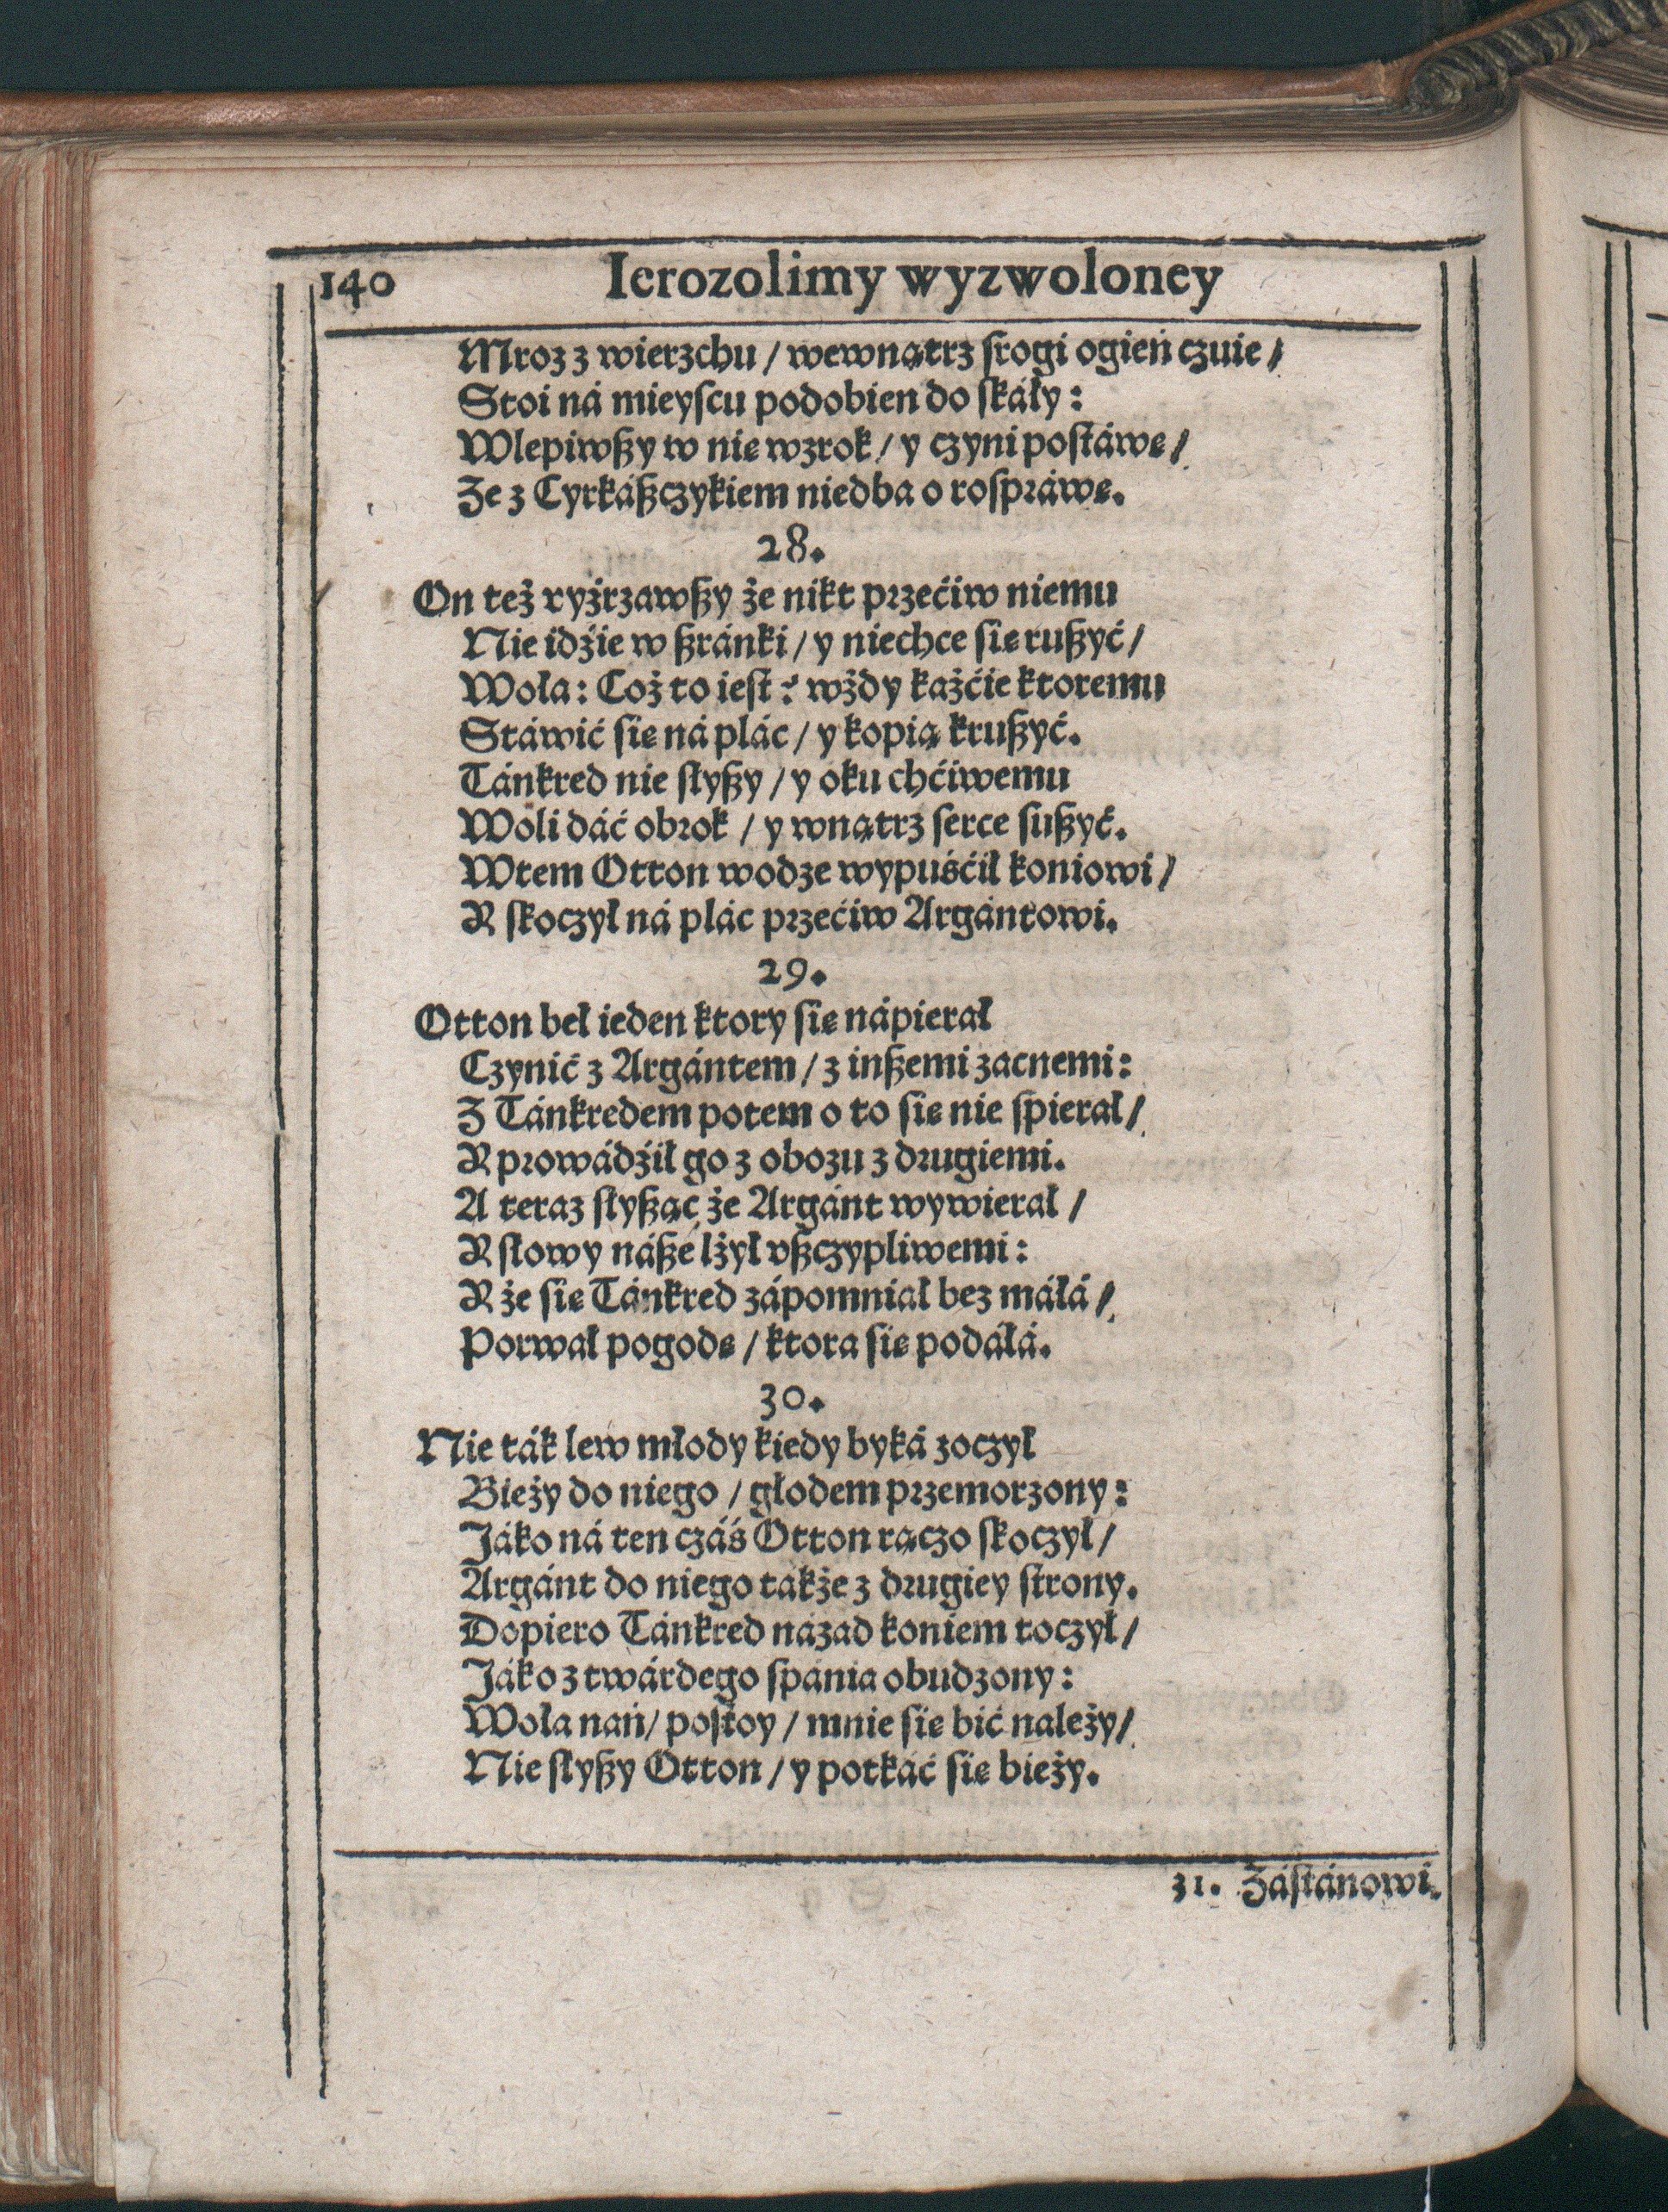 140 Ierozolimy wyzwoloney
Mroz z wierzchu / wewnątrz ſrogi ogień czuie /
Stoi ná mieyſcu podobien do ſkáły :
Wlepiwßy w nię wzrok / y czyni poſtáwę /
Ze z Cyrkáßczykiem niedba o roſpráwę.
28.
On też vyźrzawßy że nikt przećiw niemu
Nie idźie w ßránki / y niechce ſię rußyć /
Woła : Coż to ieſt ? wżdy każćie ktoremu
Stáwić ſię ná plác / y kopią krußyć.
Tánkred nie ſłyßy / y oku chćiwemu
Woli dáć obrok / y wnątrz ſerce ſußyć.
Wtem Otton wodze wypuśćił koniowi /
Y ſkoczył ná plác przećiw Argántowi.
29.
Otton beł ieden ktory ſię nápierał
Czynić z Argántem / z inßemi zacnemi :
Z Tánkredem potem o to ſię nie ſpierał /
Y prowádźił go z obozu z drugiemi.
A teraz ſłyßąc że Argánt wywierał /
Y ſłowy náße lżył vßczypliwemi :
Y że ſię Tánkred zápomniał bez máłá /
Porwał pogodę / ktora ſię podáłá.
30.
Nie ták lew młody kiedy byká zoczył
Bieży do niego / głodem przemorzony :
Jáko ná ten czáś Otton rączo ſkoczył /
Argánt do niego tákże z drugiey ſtrony.
Dopiero Tánkred názad koniem toczył /
Jáko z twárdego ſpánia obudzony :
Woła nań / poſtoy / mnie ſię bić należy /
Nie ſłyßy Otton / y potkáć ſię bieży.
31. Záſtánowi.